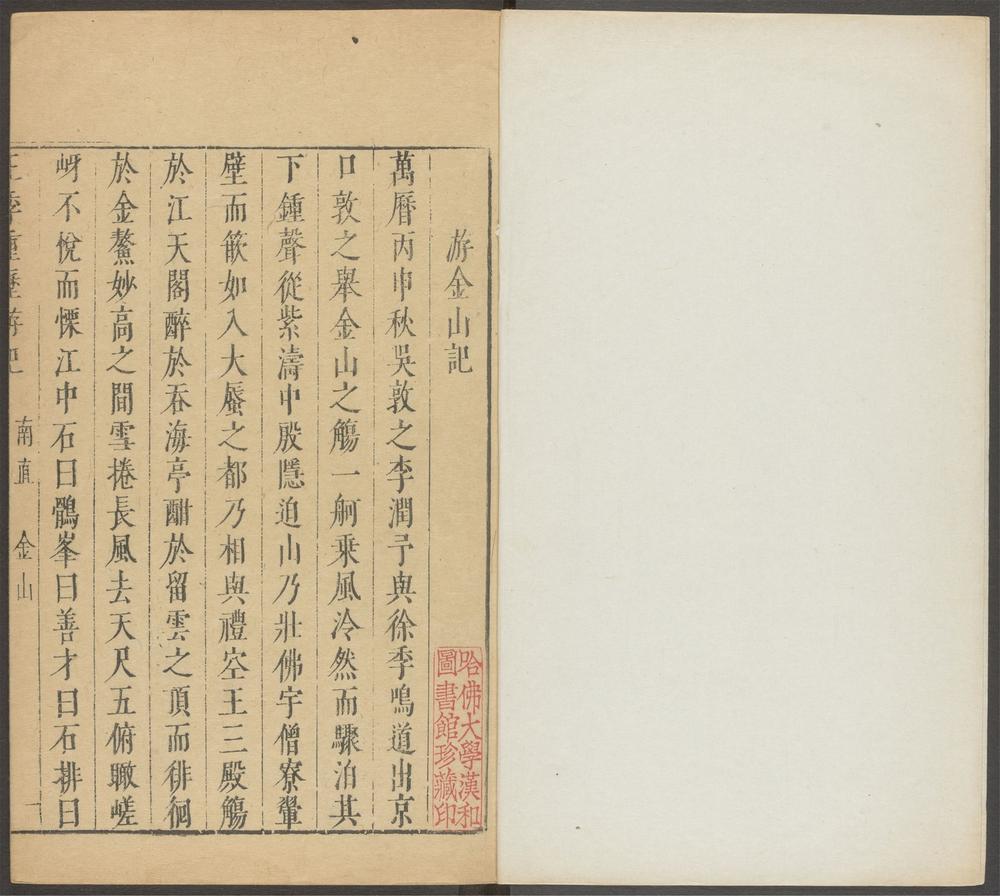 游金山記
萬曆丙申秋吳敦之李潤予與徐季鳴道出京
口敦之舉金山之觴一舸乘風泠然而驟泊其
下鍾聲從紫濤中殷隱迫山乃壯佛宇僧寮翬
壁而簌如入大蜃之都乃相與禮空王三殿觴
於江天閣醉於吞海亭酣於留雲之頂而徘徊
於金鰲妙高之間雪捲長風去天尺五俯瞰嵯
岈不悅而慄江中石曰鶻峯曰善才曰石排曰
王季重歷游記 南直 金山 一
哈佛大學漢和
圖書館珍藏印